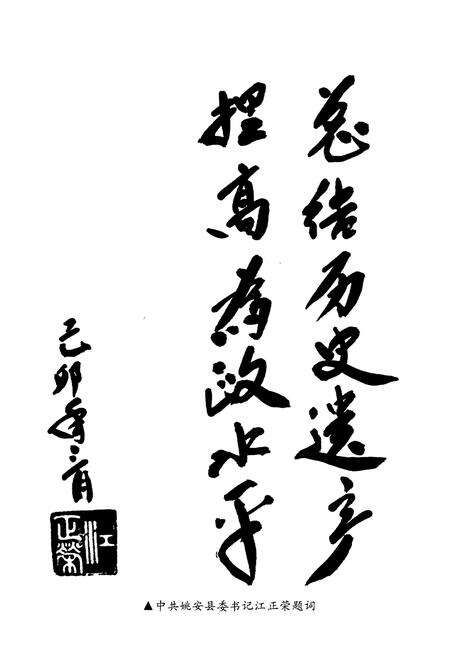 总结历史遗产
提高为政水平
己卯年二月
江正榮
▲中共姚安县委书记江正荣题词